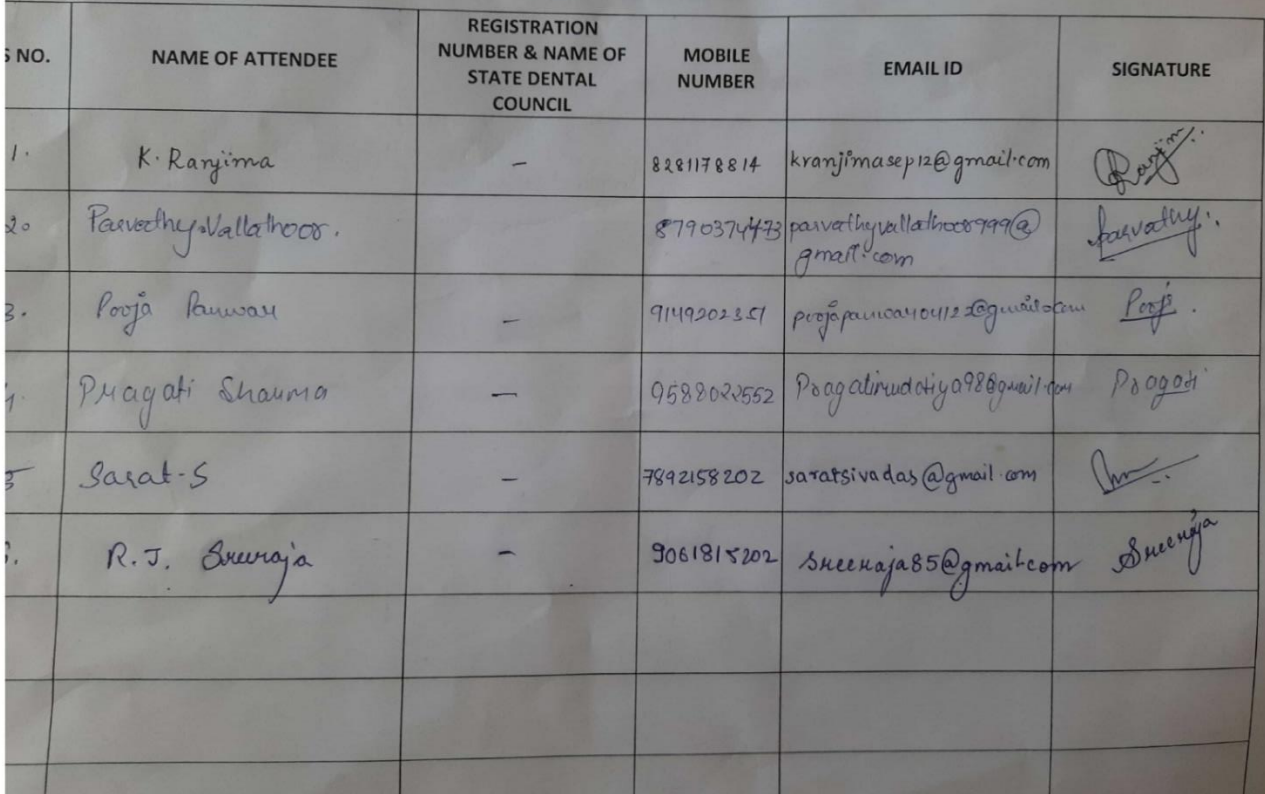 S NO. NAME OF ATTENDEE REGISTRATION NUMBER & NAME OF STATE DENTAL COUNCIL MOBILE NUMBER EMAIL ID SIGNATURE
1. K. Ranjima - 8281178814 kranjimasep12@gmail.com Ranjim
2. Parvathy.Vallathoor. 8790374473 parvathyvallathoor999@
gmail.com Parvathy.
3. Pooja Panwar - 9149202351 poojapanwar04122@gmail.com Pooj.
4. Pragati Sharma - 9588022552 @gmail.com Pragati
5 Sarat-S - 7892158202 saratsivadas@gmail.com
6. R.J. Sreeraja - 9061815202 sreeraja85@gmail.com Sreeraja